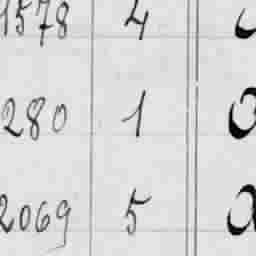 1578 4
280 1
2069 5